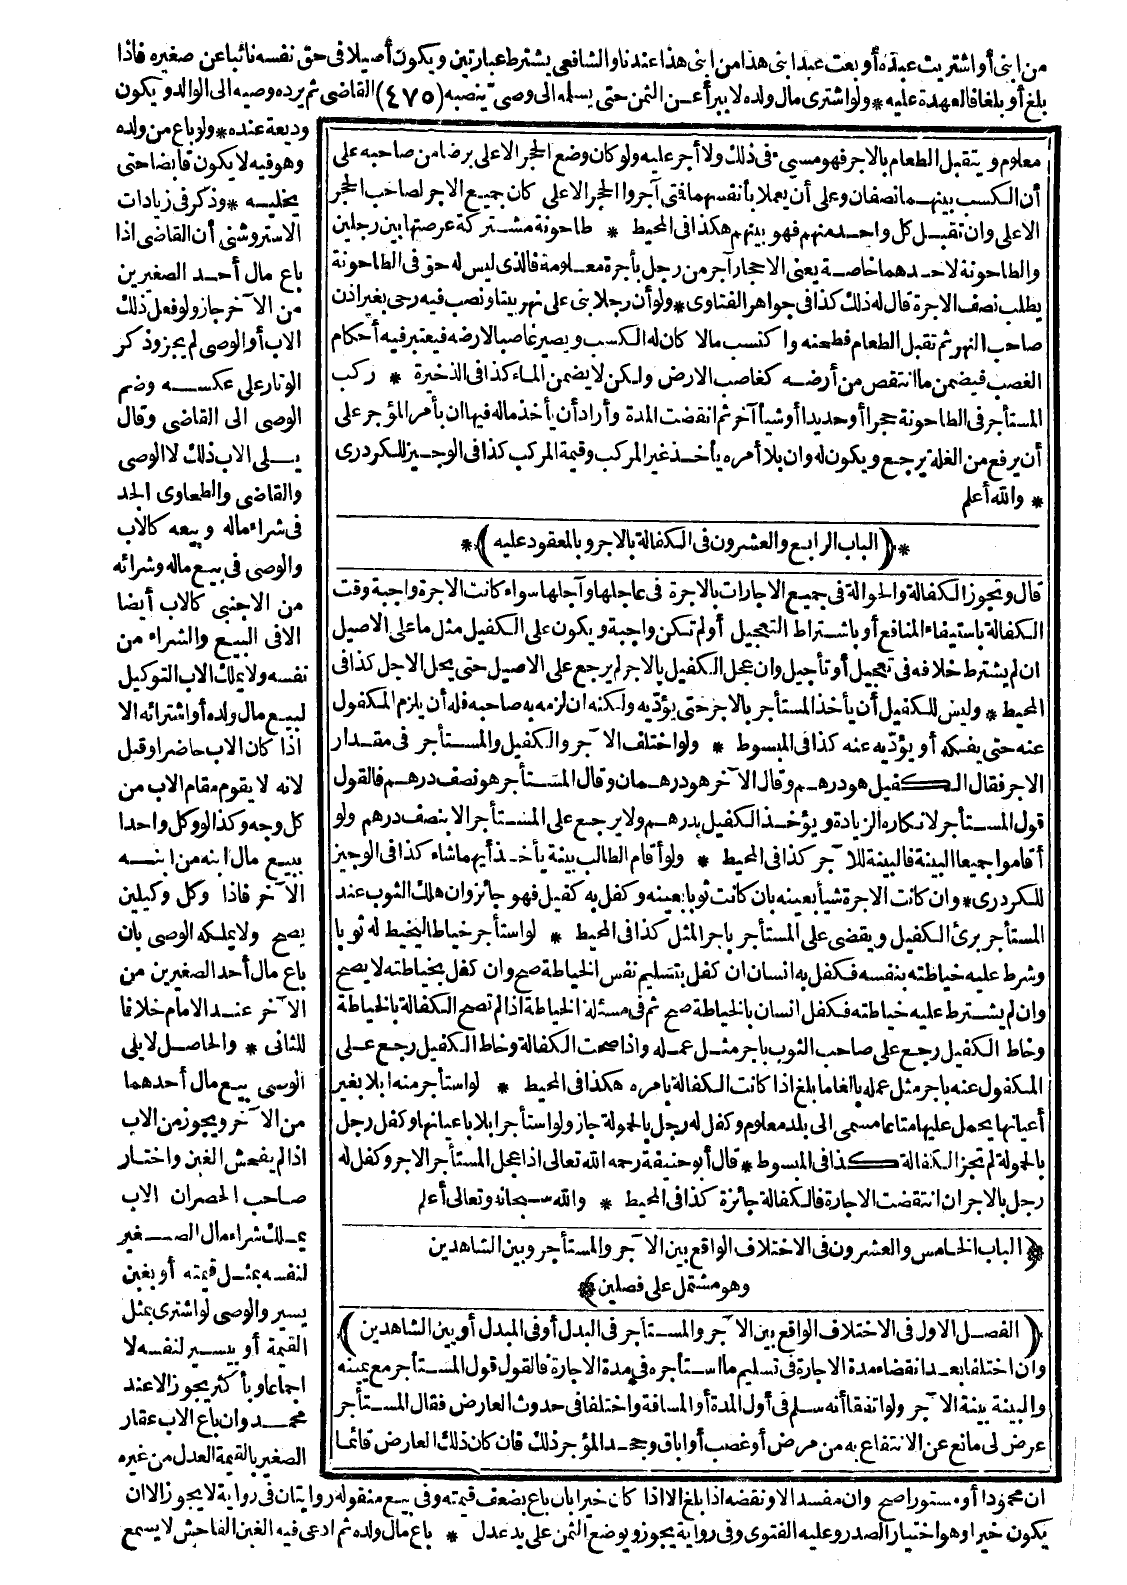 من ابنى أو اشتريت عبده أو بعت عبد ابنى هذا من ابنى هذا عندنا والشافعى يشترط عبارتين ويكون أصيلا فى حق نفسه نائبا عن صغيره فاذا
بلغ أو بلغا فالعهدة عليه * ولو اشترى مال ولده لا يبرأ عن الثمن حتى يسله الى وصى ينصبه (٤٧٥) القاضى ثم يرده وصيه الى الوالد ويكون
وديعة عنده * ولو باع من ولده
وهو فيه لا يكون قابضا حتى
يخليه * وذكر فى زيادات
الاستروشنى أن القاضى اذا
باع مال أحد الصغيرين
من الآخر جاز ولو فعل ذلك
الاب أو الوصى لم يجز وذكر
الوتار على عكسه وضم
الوصى الى القاضى وقال
يلى الاب ذلك لا الوصى
والقاضى والطعاوى الجد
فى شراء ماله وبيعه كالاب
والوصى فى بيع ماله وشرائه
من الاجنبى كالاب أيضا
الا فى البيع والشراء من
نفسه ولا يملك الاب التوكيل
لبيع مال ولده أو اشترائه الا
اذا كان الاب حاضرا وقبل
لانه لا يقوم مقام الاب من
كل وجه وكذا لو وكل واحدا
ببيع مال ابنه من ابنه
الآخر فاذا وكل وكيلين
يصح ولا يملكه الوصى بان
باع مال أحد الصغيرين من
الآخر عند الامام خلافا
للثانى * والحاصل لا يلى
الوصى بيع مال أحدهما
من الآخر ويجوز من الاب
اذا لم يفحش الغبن واختار
صاحب الحصران الاب
يملك شراء مال الصغير
لنفسه بمثل قيمته أو بغبن
يسير والوصى لو اشترى بمثل
القيمة أو بيسير لنفسه لا
اجماعا وبأكثر يجوز الا عند
محمد وان باع الاب عقار
الصغير بالقيمة العدل من غيره
معلوم ويتقبل الطعام بالاجر فهو مسىء فى ذلك ولا أجر عليه ولو كان وضع الحجر الاعلى برضا من صاحبه على
أن الكسب بينهما نصفان وعلى أن يعملا بأنفسهما فتى آجروا الحجر الاعلى كان جميع الاجر لصاحب الحجر
الاعلى وان تقبل كل واحد منهم فهو بينهم هكذا فى المحيط * طاحونة مشتركة عرصتها بين رجلين
والطاحونة لاحدهما خاصة يعنى الاحجار آجر من رجل بأجرة معلومة فالذى ليس له حق فى الطاحونة
يطلب نصف الاجرة قال له ذلك كذا فى جواهر الفتاوى * ولو أن رجلا بنى على نهر بيتا ونصب فيه رحى بغير اذن
صاحب النهر ثم تقبل الطعام فطحنه واكتسب مالا كان له الكسب ويصير غاصبا لارضه فيعتبر فيه أحكام
الغصب فيضمن ما انتقص من أرضه كغاصب الارض ولكن لا يضمن الماء كذا فى الذخيرة * ركب
المستأجر فى الطاحونة حجرا أو حديدا أو شيأ آخر ثم انقضت المدة وأراد أن يأخذ ماله فيها ان بأمر المؤجر على
أن يرفع من الغلة يرجع ويكون له وان بلا أمره يأخذ غير المركب وقيمة المركب كذا فى الوجيز للكردرى
* والله أعلم
* (الباب الرابع والعشرون فى الكفالة بالاجر وبالمعقود عليه) *
قال وتجوز الكفالة والحوالة فى جميع الاجارات بالاجرة فى عاجلها وآجلها سواء كانت الاجرة واجبة وقت
الكفالة باستيفاء المنافع أو باشتراط التعجيل أو لم تكن واجبة ويكون على الكفيل مثل ما على الاصيل
ان لم يشترط خلافه فى تعجيل أو تأجيل وان عجل الكفيل بالاجر لم يرجع على الاصيل حتى يحل الاجل كذا فى
المحيط * وليس للكفيل أن يأخذ المستأجر بالاجر حتى يؤديه ولكنه ان لزمه به صاحبه فله أن يلزم المكفول
عنه حتى يفكه أو يؤديه عنه كذا فى المبسوط * ولو اختلف الآجر والكفيل والمستأجر فى مقدار
الاجر فقال الكفيل هو درهم وقال الآخر هو درهمان وقال المستأجر هو نصف درهم فالقول
قول المستأجر لانكاره الزيادة ويؤخذ الكفيل بدرهم ولا يرجع على المستأجر الا بنصف درهم ولو
أقاموا جميعا البينة فالبينة للآجر كذا فى المحيط * ولو أقام الطالب بينة يأخذ أيهما شاء كذا فى الوجيز
للكردرى * وان كانت الاجرة شيأ بعينه بان كانت ثوبا بعينه وكفل به كفيل فهو جائز وان هلك الثوب عند
المستأجر برئ الكفيل ويقضى على المستأجر باجر المثل كذا فى المحيط * لو استأجر خياطا ليخيط له ثوبا
وشرط عليه خياطته بنفسه فكفل به انسان ان كفل بتسليم نفس الخياطة صح وان كفل بخياطته لا يصح
وان لم يشترط عليه خياطته فكفل انسان بالخياطة صح ثم فى مسئلة الخياطة اذا لم تصح الكفالة بالخياطة
وخاط الكفيل رجع على صاحب الثوب باجر مثل عمله واذا صحت الكفالة وخاط الكفيل رجع على
المكفول عنه باجر مثل عمله بالغا ما بلغ اذا كانت الكفالة بامره هكذا فى المحيط * لو استأجر منه ابلا بغير
أعيانها يحمل عليها متاعا مسمى الى بلد معلوم وكفل له رجل بالحمولة جاز ولو استأجر ابلا باعيانها وكفل رجل
بالحمولة لم تجز الكفالة كذا فى المبسوط * قال أبو حنيفة رحمه الله تعالى اذا عجل المستأجر الاجر وكفل له
رجل بالاجر ان انتقضت الاجارة فالكفالة جائزة كذا فى المحيط * والله سبحانه وتعالى أعلم
* (الباب الخامس والعشرون فى الاختلاف الواقع بين الآجر والمستأجر وبين الشاهدين
وهو مشتمل على فصلين) *
(الفصل الاول فى الاختلاف الواقع بين الآجر والمستأجر فى البدل أو فى المبدل أو بين الشاهدين)
وان اختلفا بعد انقضاء مدة الاجارة فى تسليم ما استأجره فى مدة الاجارة فالقول قول المستأجر مع يمينه
والبينة بينة الآجر ولو اتفقا أنه سلم فى أول المدة أو المسافة واختلفا فى حدوث العارض فقال المستأجر
عرض لى مانع عن الانتفاع به من مرض أو غصب أو اباق وجحد المؤجر ذلك فان كان ذلك العارض قائما
ان محمودا أو مستورا صح وان مفسدا لا ونقضه اذا بلغ الا اذا كان خيرا بان باع بضعف قيمته وفى بيع منقوله روايتان فى رواية لا يجوز الا ان
يكون خيرا وهو اختيار الصدر وعليه الفتوى وفى رواية يجوز ويوضع الثمن على يد عدل * باع مال ولده ثم ادعى فيه الغبن الفاحش لا يسمع